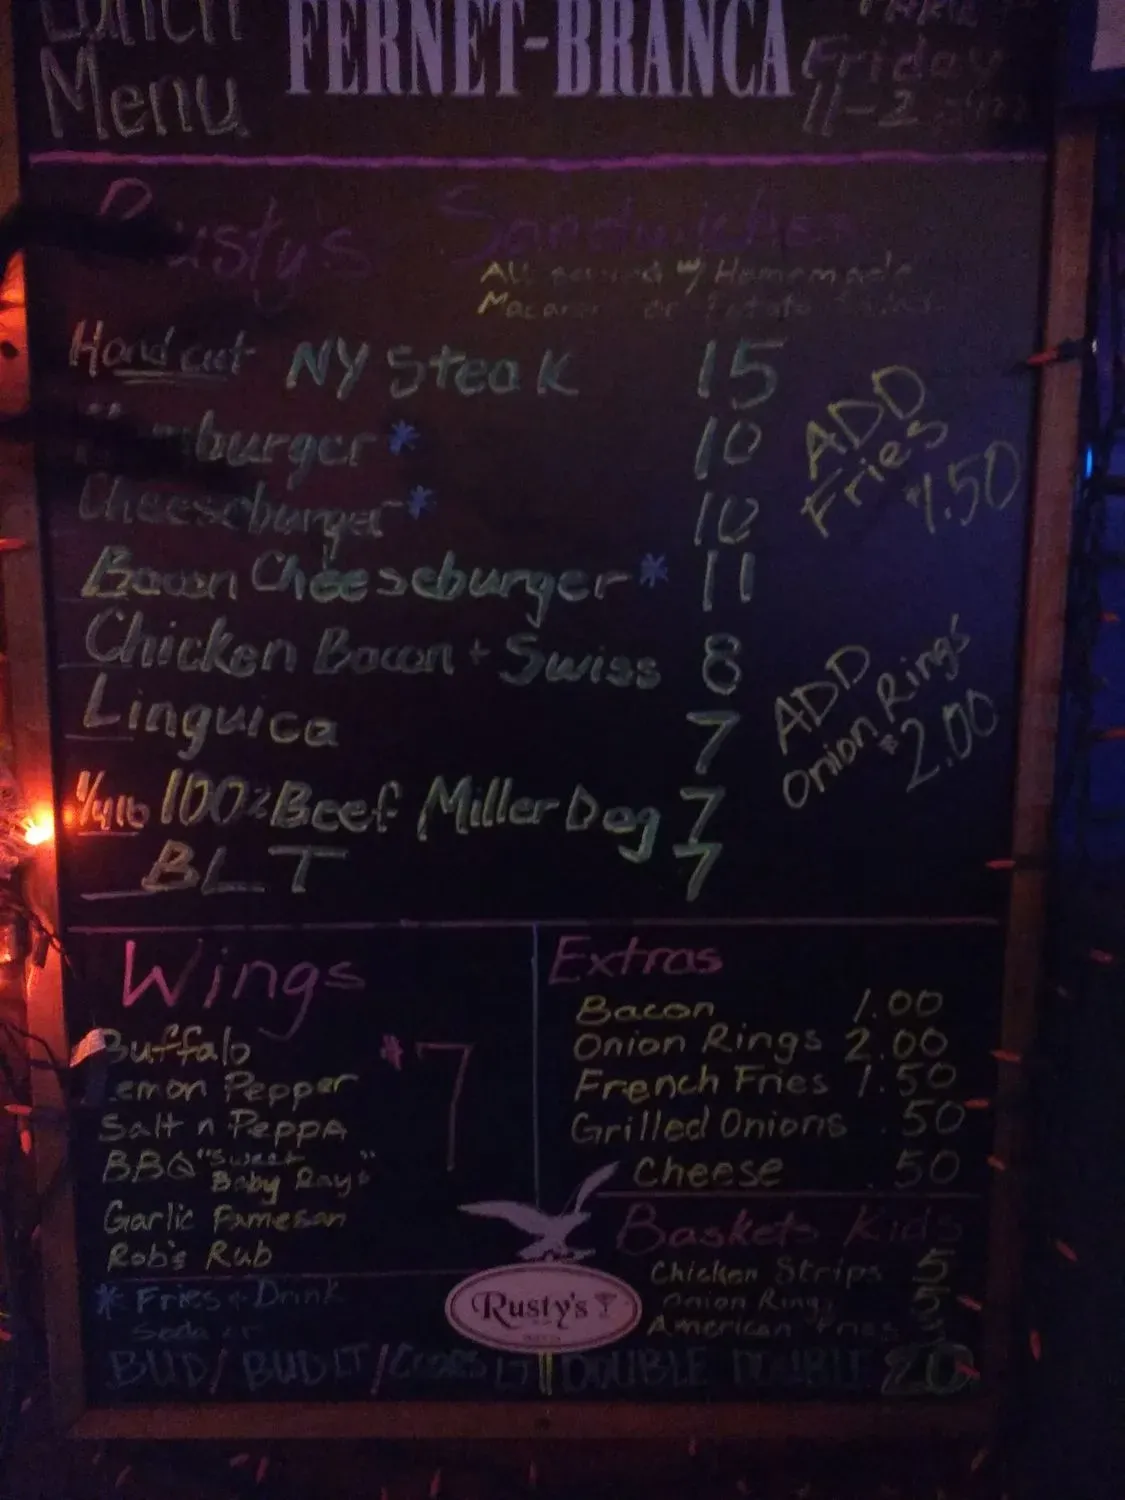 Lunch
Menu
FERNET-BRANCA
Friday
11-2
Rusty's Sandwiches
All served w/ Homemade
Macaroni or Potato
Hand cut NY Steak 15
Hamburger* 10
Cheeseburger* 10
Bacon Cheeseburger* 11
Chicken Bacon + Swiss 8
Linguica 7
1/4 lb 100% Beef Miller Dog 7
BLT 7
ADD
Fries
1.50
ADD
Onion Rings
$2.00
Wings
$7
Buffalo
Lemon Pepper
Salt n PeppA
BBQ "Sweet
Baby Rays"
Garlic Pamesan
Rob's Rub
Extras
Bacon 1.00
Onion Rings 2.00
French Fries 1.50
Grilled Onions .50
Cheese .50
Baskets Kids
Chicken Strips 5
Onion Rings 5
American Fries
* Fries + Drink
Soda or
BUD/BUD LT/COORS LT
DOUBLE DOUBLE 20
Rusty's